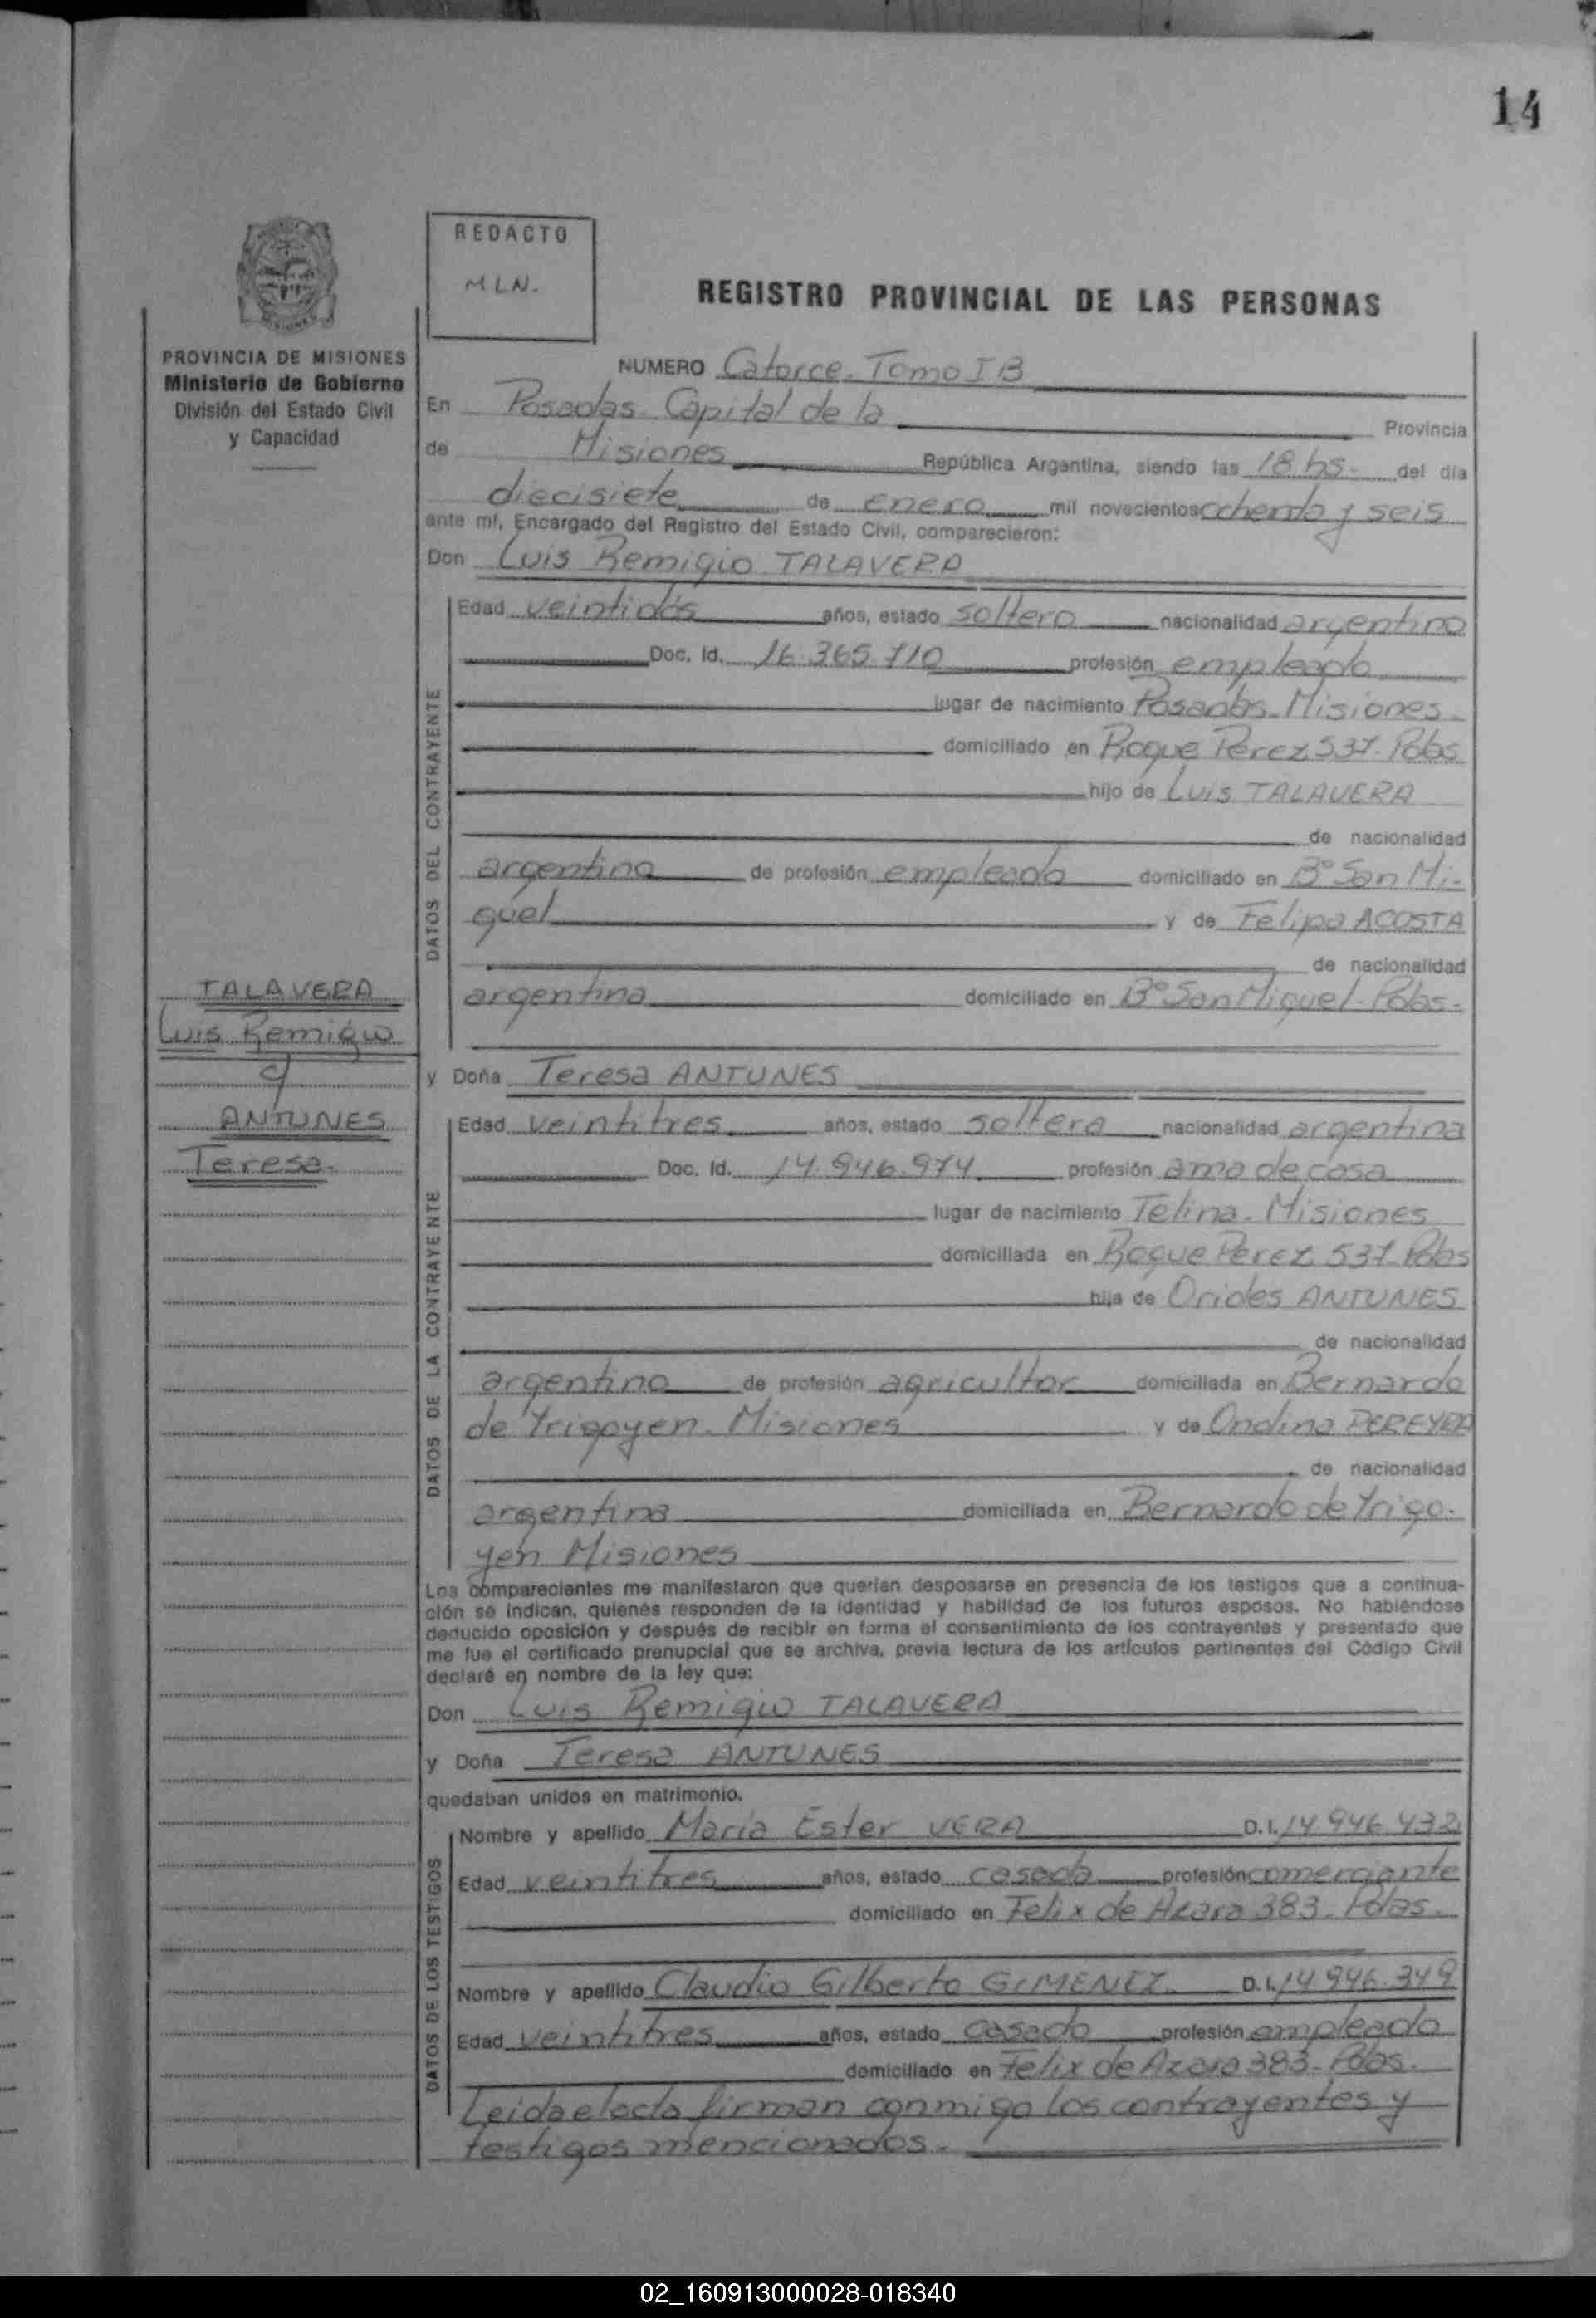 14
REDACTO
MLN.
REGISTRO PROVINCIAL DE LAS PERSONAS
PROVINCIA DE MISIONES
Ministerio de Gobierno
División del Estado Civil
y Capacidad
NUMERO Catorce - Tomo I B
En Posadas Capital de la Provincia
de Misiones República Argentina, siendo las 18 hs. del día
diecisiete de enero mil novecientos ochenta y seis
ante mí, Encargado del Registro del Estado Civil, comparecieron:
Don Luis Remigio TALAVERA
DATOS DEL CONTRAYENTE
Edad veintidós años, estado soltero nacionalidad argentino
Doc. Id. 16.365.710 profesión empleado
lugar de nacimiento Posadas - Misiones -
domiciliado en Roque Perez 537 - Pdas
hijo de LUIS TALAVERA
de nacionalidad
argentino de profesión empleado domiciliado en B° San Mi-
guel y de Felipa ACOSTA
de nacionalidad
argentina domiciliado en B° San Miguel - Pdas -
TALAVERA
Luis Remigio
y
ANTUNES
Teresa.
y Doña Teresa ANTUNES
DATOS DE LA CONTRAYENTE
Edad veintitres años, estado soltera nacionalidad argentina
Doc. Id. 14.946.974 profesión ama de casa
lugar de nacimiento Misiones
domiciliada en Roque Perez 537 - Pdas
hija de Orides ANTUNES
de nacionalidad
argentino de profesión agricultor domiciliada en Bernardo
de Yrigoyen - Misiones y de Ondina PEREYRA
de nacionalidad
argentina domiciliada en Bernardo de Yrigo-
yen Misiones
Los comparecientes me manifestaron que querían desposarse en presencia de los testigos que a continua-
ción se indican, quienes responden de la identidad y habilidad de los futuros esposos. No habiéndose
deducido oposición y después de recibir en forma el consentimiento de los contrayentes y presentado que
me fue el certificado prenupcial que se archiva, previa lectura de los artículos pertinentes del Código Civil
declaré en nombre de la ley que:
Don Luis Remigio TALAVERA
y Doña Teresa ANTUNES
quedaban unidos en matrimonio.
DATOS DE LOS TESTIGOS
Nombre y apellido María Ester VERA D.I. 14.946.432
Edad veintitres años, estado casada profesión comerciante
domiciliado en Felix de Azara 383 - Pdas.
Nombre y apellido Claudio Gilberto GIMENEZ D.I. 14.946.349
Edad veintitres años, estado casado profesión empleado
domiciliado en Felix de Azara 383 - Pdas.
Leida el acta firman conmigo los contrayentes y
testigos mencionados.
02_160913000028-018340